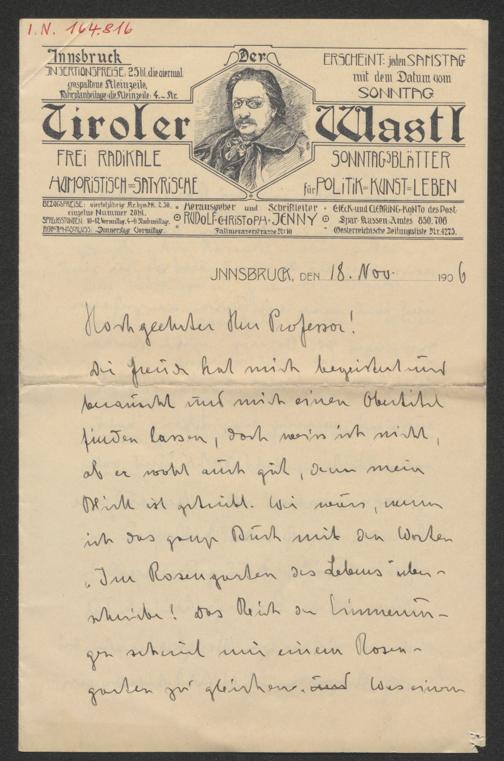 I.N. 164.816
Innsbruck
INSERTIONSPREISE: 25 hl. die viermal
gespaltene Kleinzeile,
4.- Kr.
Der
ERSCHEINT: jeden SAMSTAG
mit dem Datum vom
SONNTAG
Tiroler Wastl
FREI RADIKALE
HUMORISTISCH=SATYRISCHE
SONNTAGSBLÄTTER
für POLITIK=KUNST=LEBEN
BEZUGSPREISE: vierteljährig Kr. 2.50,
einzelne Nummer 20 hl.
SPRECHSTUNDEN: 10-12 Vormittag, 4-6 Nachmittag.
Donnerstag Vormittag.
Herausgeber und Schriftleiter
RUDOLF=CHRISTOPH=JENNY
Pallmerayerstrasse Nr 10
CHECK- und CLEARING-KONTO des Post-
Spar-Kassen-Amtes 850.706
Oesterreichische Zeitungsliste Nr. 4273.
INNSBRUCK, DEN 18. Nov. 1906
Hochgeehrter Herr Professor!
Die Freude hat mich begeistert und
berauscht und mich einen Obertitel
finden lassen, doch weiss ich nicht,
ob er wohl auch gut, denn mein
Blick ist getrübt. Wie wärs, wenn
ich das ganze Buch mit den Worten
„Im Rosengarten des Lebens" über-
schriebe! Das Reich der Erinnerun-
gen scheint mir einem Rosen-
garten zu gleichen. und Was einem